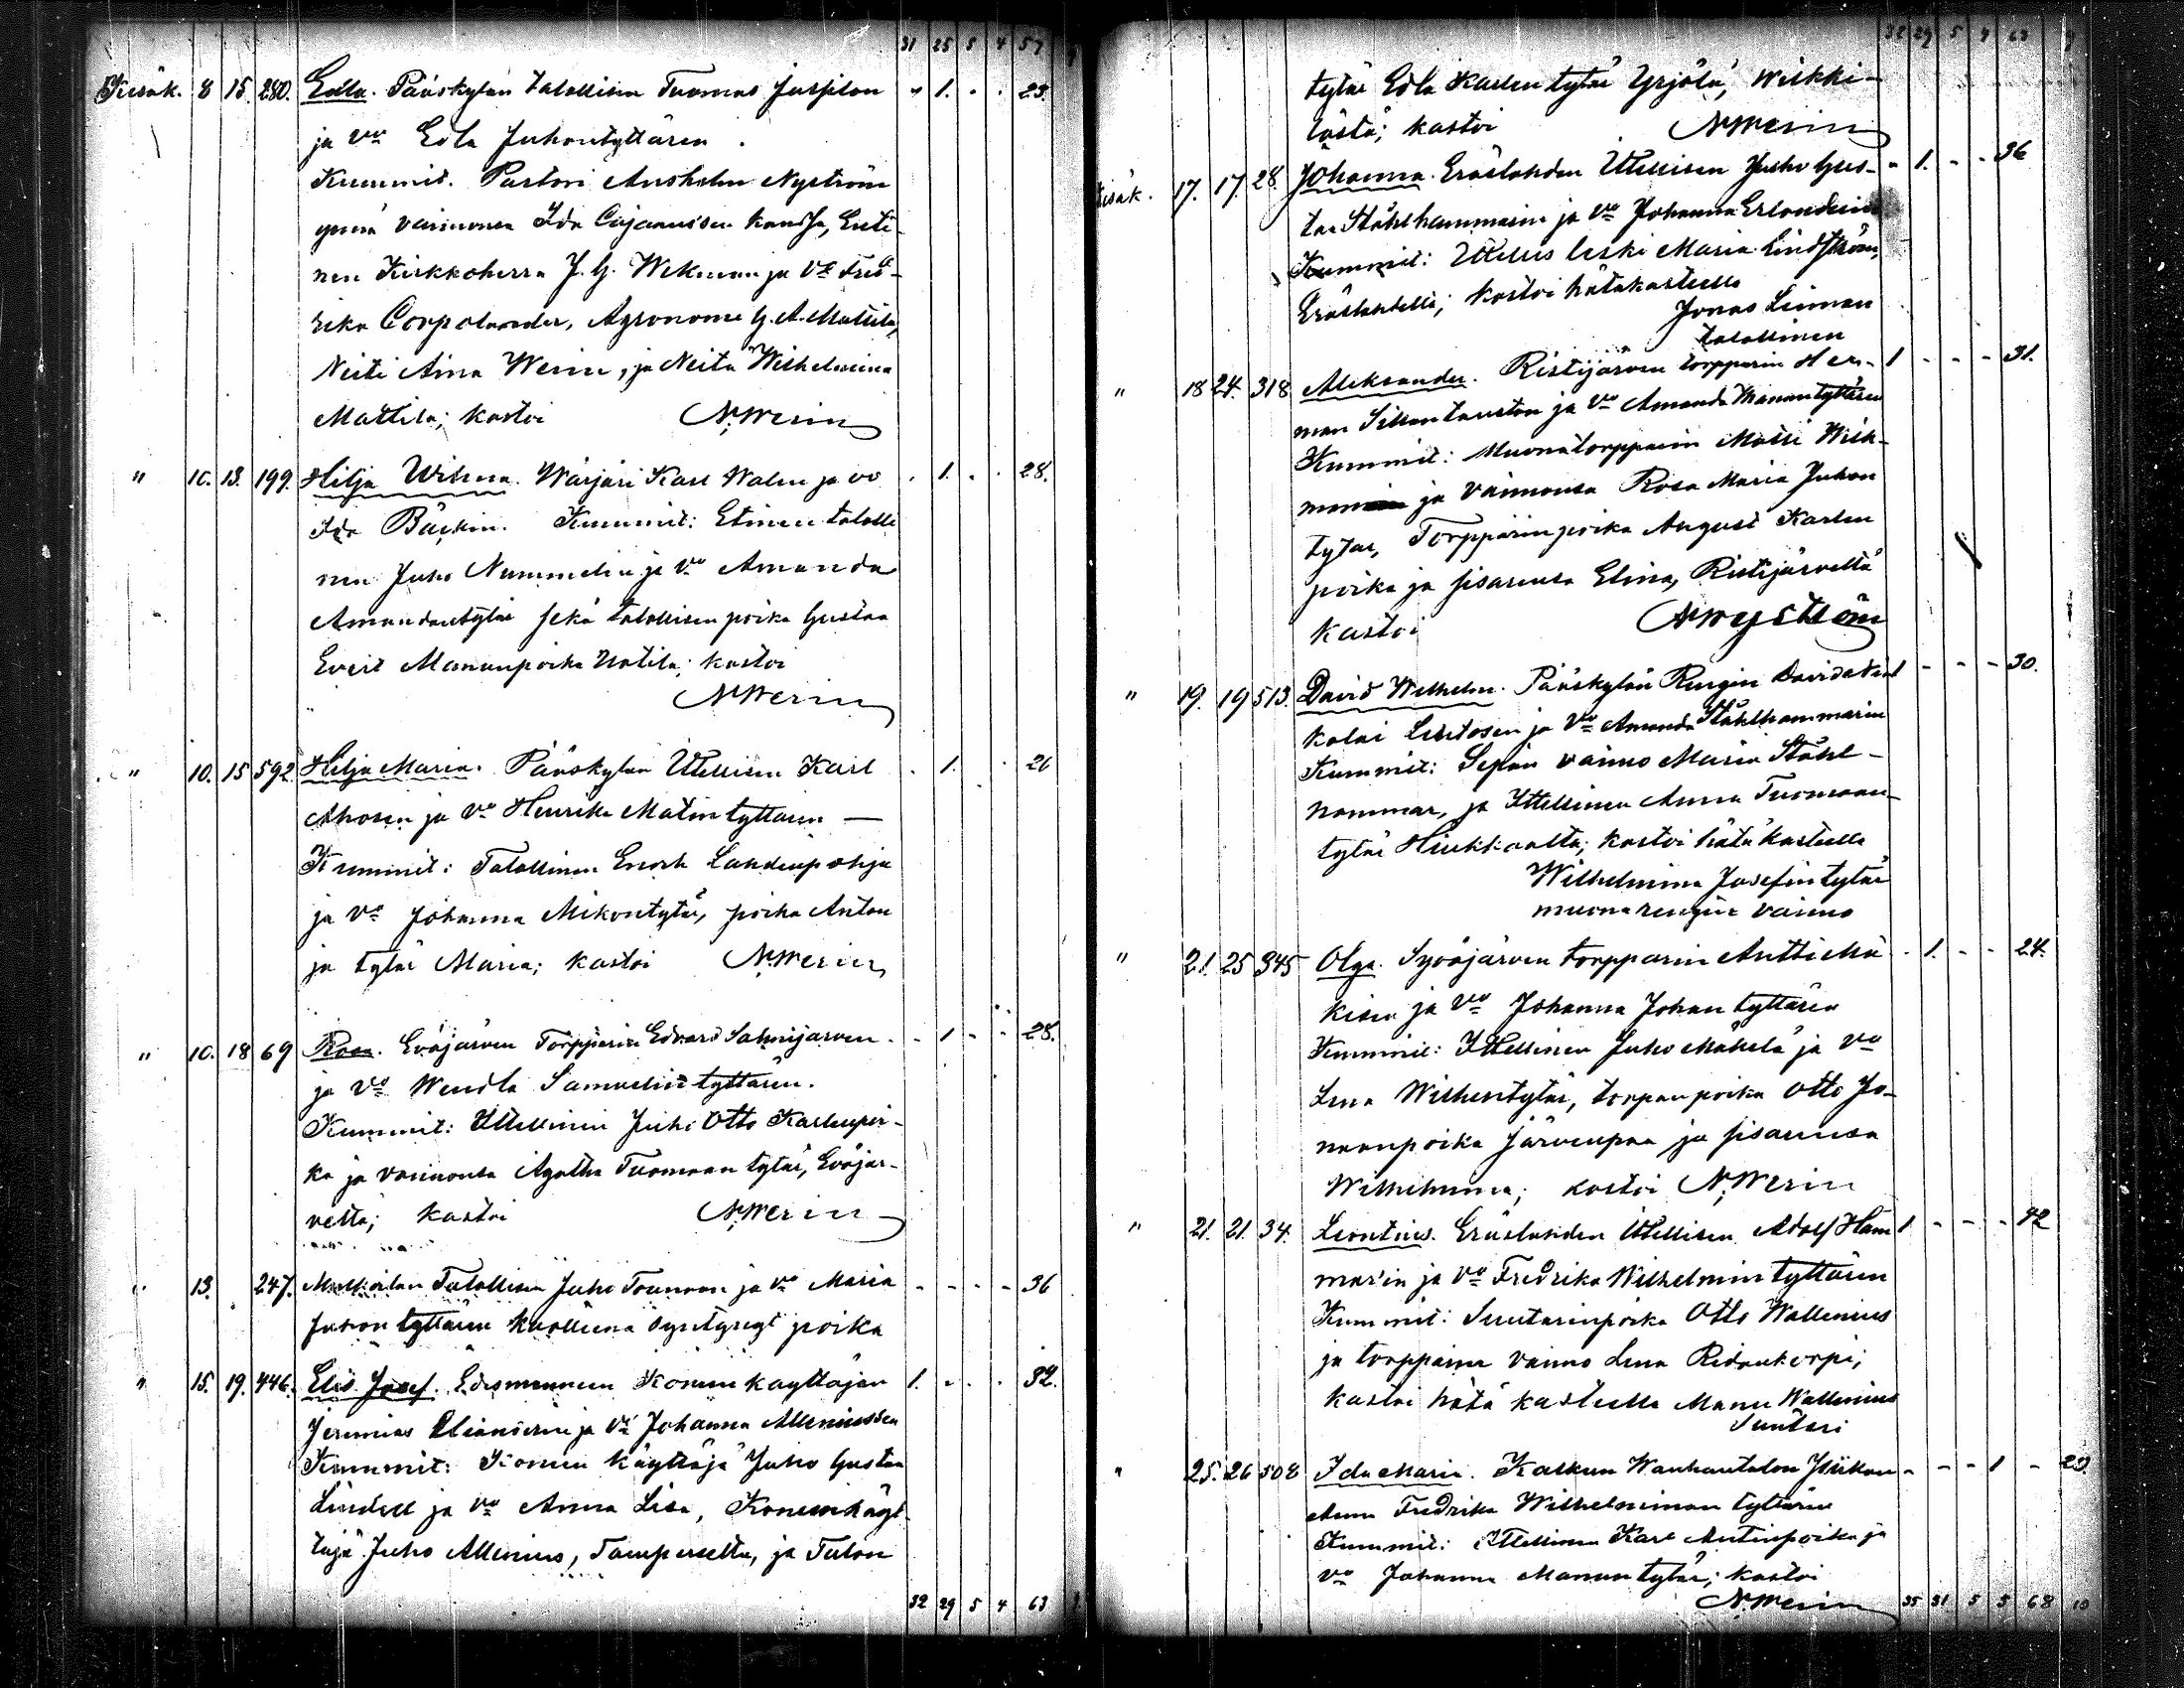 31 25 5 4 57
Kesäk. 8 15. 280. Edla. Pääskylän talollisen Tuomas Jussilan - 1. - - 23.
ja vo Edla Juhontyttären.
Kummit. Pastori Anshelm Nyström
ynnä vaimonsa Ida Cajanus'sen kanssa, Enti-
nen Kirkkoherra J. G. Wikman ja vo Fred-
rika Corpolander, Agronomi G. A. Mattila,
Neiti Aina Werin, ja Neitsy Wilhelmina
Mattila; kastoi N. Werin
" 10. 13. 199. Hilja Wilma. Wärjäri Karl Walin ja vo - 1. - - 28.
Ida Bäckin. Kummit: Etinen talolli
nen Juho Nummelin ja vo Amanda
Amandantytär sekä talollisen poika Gustaa
Evert Manunpoika Uotila; kastoi
N. Werin
" 10. 15 592 Hilja Maria. Pääskylän Itsellisen Karl - 1. - 26
Ahosen ja vo Henrika Matintyttären —
Kummit: Talollinen Enoch Lahdenpohja
ja vo Johanna Mikontytär, poika Anton
ja tytär Maria; kastoi N. Werin
" 10. 18 69 Rosa. Eväjärven Torpparin Edvard Salmijärven - 1 - - 28.
ja vo Wendla Samuelintyttären.
Kummit: Itsellinen Juho Otto Karlenpoi-
ka ja vaimonsa Agatha Tuomaantytär, Eväjär-
veltä; kastoi N. Werin
" 13. 247. Talollisen Juho Tounaan ja vo Maria - - - - 36
Juhontyttären kuolleena syntynyt poika
" 15. 19. 446. Elis Josef. Edesmenneen Konien käyttäjän 1. - - 32.
Jeremias Elianderin ja vo Johanna Alleniussen
Kummit: Konien käyttäjä Juho Gustaa
Lindell ja vo Anna Lisa, Konienkäyt-
täjä Juho Allenius, Tampereelta, ja Talon
32 29 5 4 63
32 29 5 4 63
tytär Edla Karlentytär Yrjölä, Wilkki-
lästä; kastoi N. Werin
Kesäk. 17. 17. 28. Johanna. Eräslahden Itsellisen Juho Gus- - 1. - - 36
taa Ståhlhammarin ja vo Johanna Erlanderin
Kummit: Itsellis leski Maria Lindström,
Eräslahdelta; kastoi hätäkasteella
Jonas Linman
talollinen
" 18 24. 318 Aleksander. Ristijärven torpparin Her- 1 - - - 31.
man Sillantaustan ja vo Amanda Manuntyttären
Kummit: Muonatorpparin Matti Wilk-
man ja vaimonsa Rosa Maria Juhon
tytär, Torpparinpoika August Karlen
poika ja sisarensa Elina, Ristijärveltä
kastoi A Nyström
" 19. 19 513. David Wilhelm. Pääskylän Rengin David Ni- 1 - - - 30.
kolai Lehtosen ja vo Amanda Ståhlhammarin
Kummit: Sepän vaimo Maria Ståhl-
hammar, ja Itsellinen Anna Tuomaan-
tytär Hiukkaalta; kastoi hätäkasteella
Wilhelmina Josefintytär
muonarengin vaimo
" 21. 25 345 Olga. Syväjärven torpparin Antti Mä - 1. - - 24.
kisen ja vo Johanna Johantyttären
Kummit: Itsellinen Juho Mäkelä ja vo
Lena Wilhentytär, torpanpoika Otto Jo-
naanpoika Järvenpää ja sisarensa
Wilhelmina; kastoi N. Werin
" 21. 21. 34. Leontius. Eräslahden Itsellisen Adolf Ham 1. - - - 42
marin ja vo Fredrika Wilhelmintyttären
Kummit: Suutarinpoika Otto Wallenius
ja torpparin vaimo Lena Ridankorpi;
kastoi hätäkasteella Manu Wallenius
Suutari
" 25. 26 508 Ida Maria. Kalkun Wanhantalon Piikan - - - 1 - 29.
Anna Fredrika Wilhelmiinantyttären
Kummit: Itsellinen Karl Antinpoika ja
vo Johanna Manuntytär; kastoi
N. Werin 35 31 5 5 68 10